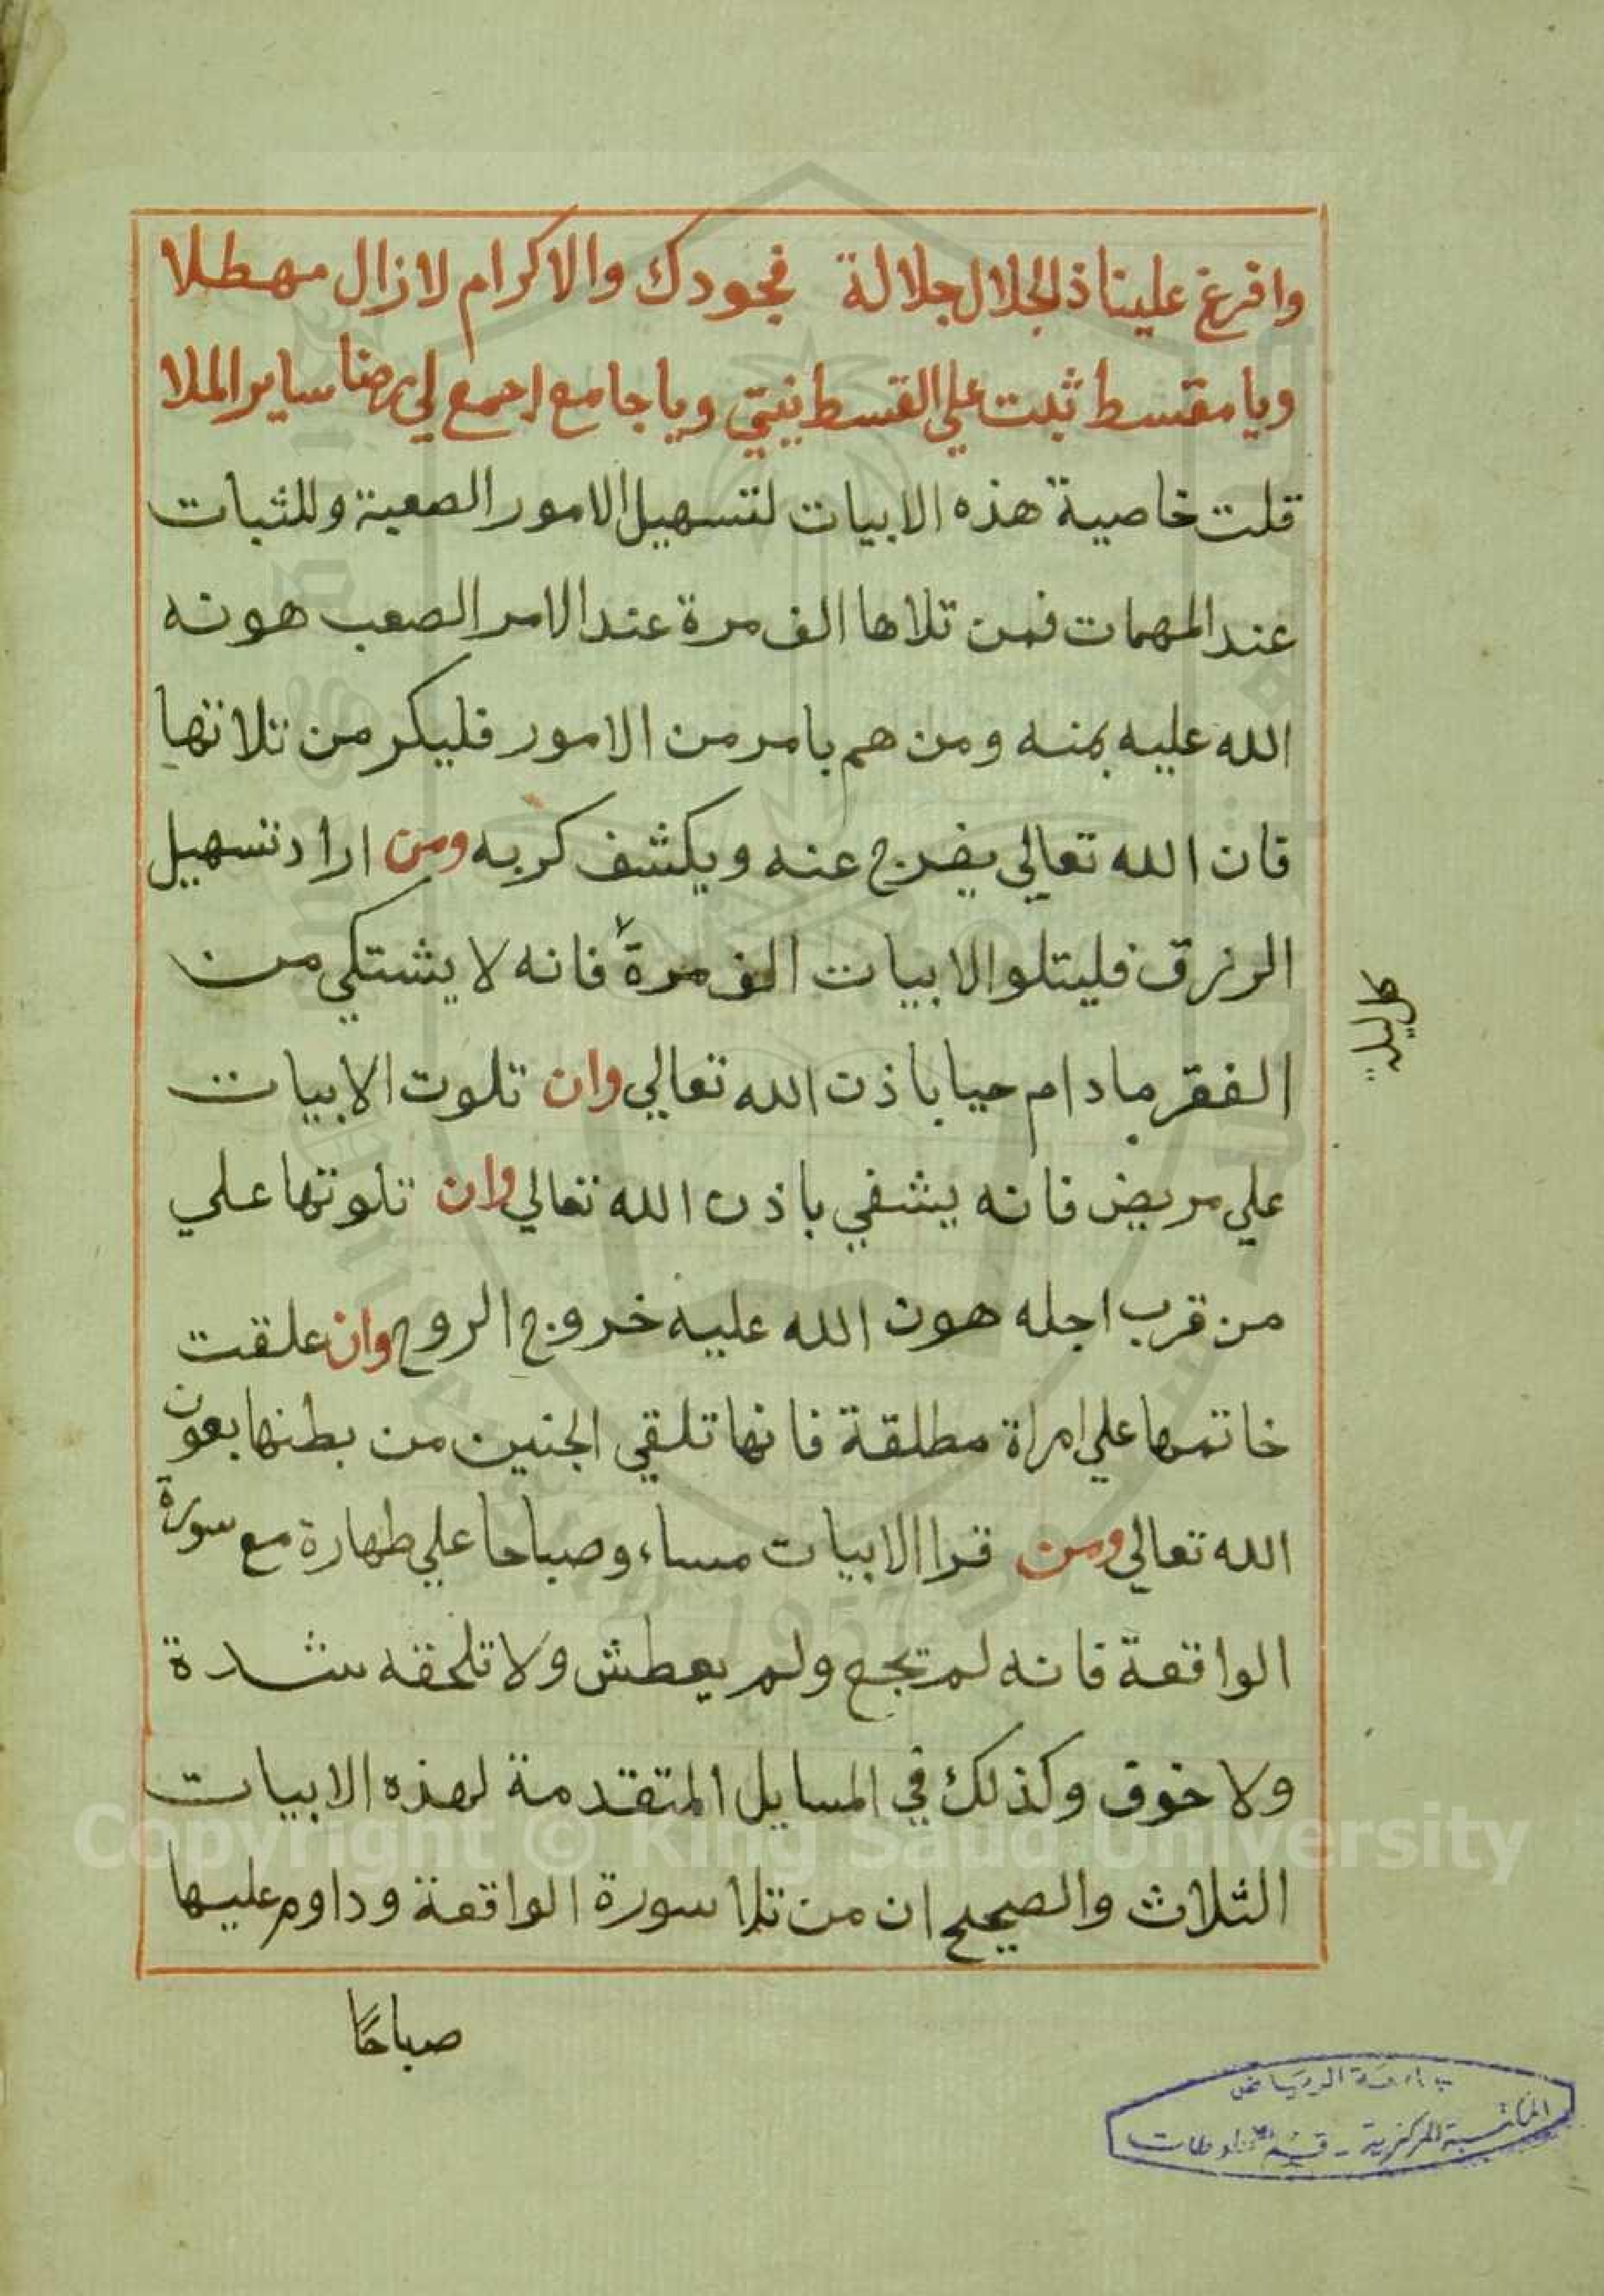 وافرغ علينا ذالجلال جلالة فجودك والاكرام لازال مهطلا
ويا مقسط ثبت علي القسط نيتي ويا جامع اجمع لي رضا ساير الملا
قلت خاصية هذه الابيات لتسهيل الامور الصعبة وللثبات
عند المهمات فمن تلاها الف مرة عند الامر الصعب هونه
الله عليه بمنه ومن هم بامر من الامور فليكر من تلاتها
فان الله تعالي يفرج عنه ويكشف كربه ومن اراد تسهيل
الرزق فليتلو الابيات الف مرة فانه لا يشتكي من
كل ليلة
الفقر مادام حيا باذن الله تعالي وان تلوت الابيات
علي مريض فانه يشفي باذن الله تعالي وان تلوتها علي
من قرب اجله هون الله عليه خروج الروح وان علقت
خاتمها علي امراة مطلقة فانها تلقي الجنين من بطنها بعون
الله تعالي ومن قرا الابيات مساء وصباحا علي طهارة مع سورة
الواقعة فانه لم تجع ولم يعطش ولا تلحقه شدة
ولا خوف وكذلك في المسايل المتقدمة لهذه الابيات
الثلاث والصحيح ان من تلا سورة الواقعة وداوم عليها
صباحًا
جامعة الرياض
المكتبة المركزية - قسم المخطوطات
Copyright © King Saud University
1957